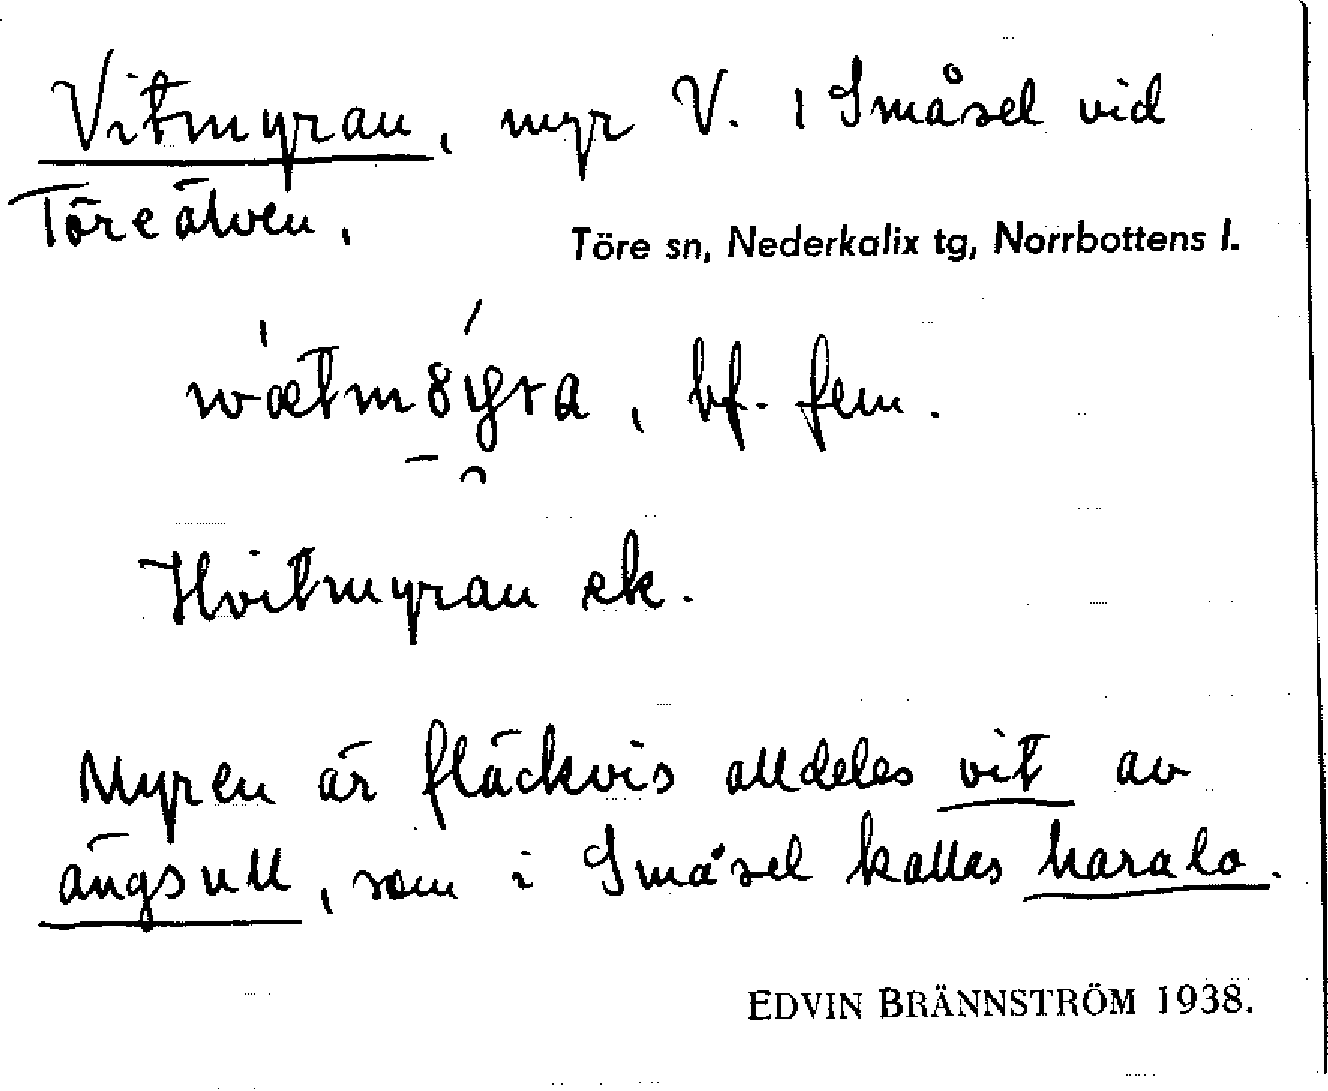 Vitmyran, myr V. i Småsel vid
Töreälven.
Töre sn, Nederkalix tg, Norrbottens l.
bf. fem.
Hvitmyran ek.
Myren är fläckvis alldeles vit av
ängsull, som i Småsel kallas haralo.
EDVIN BRÄNNSTRÖM 1938.